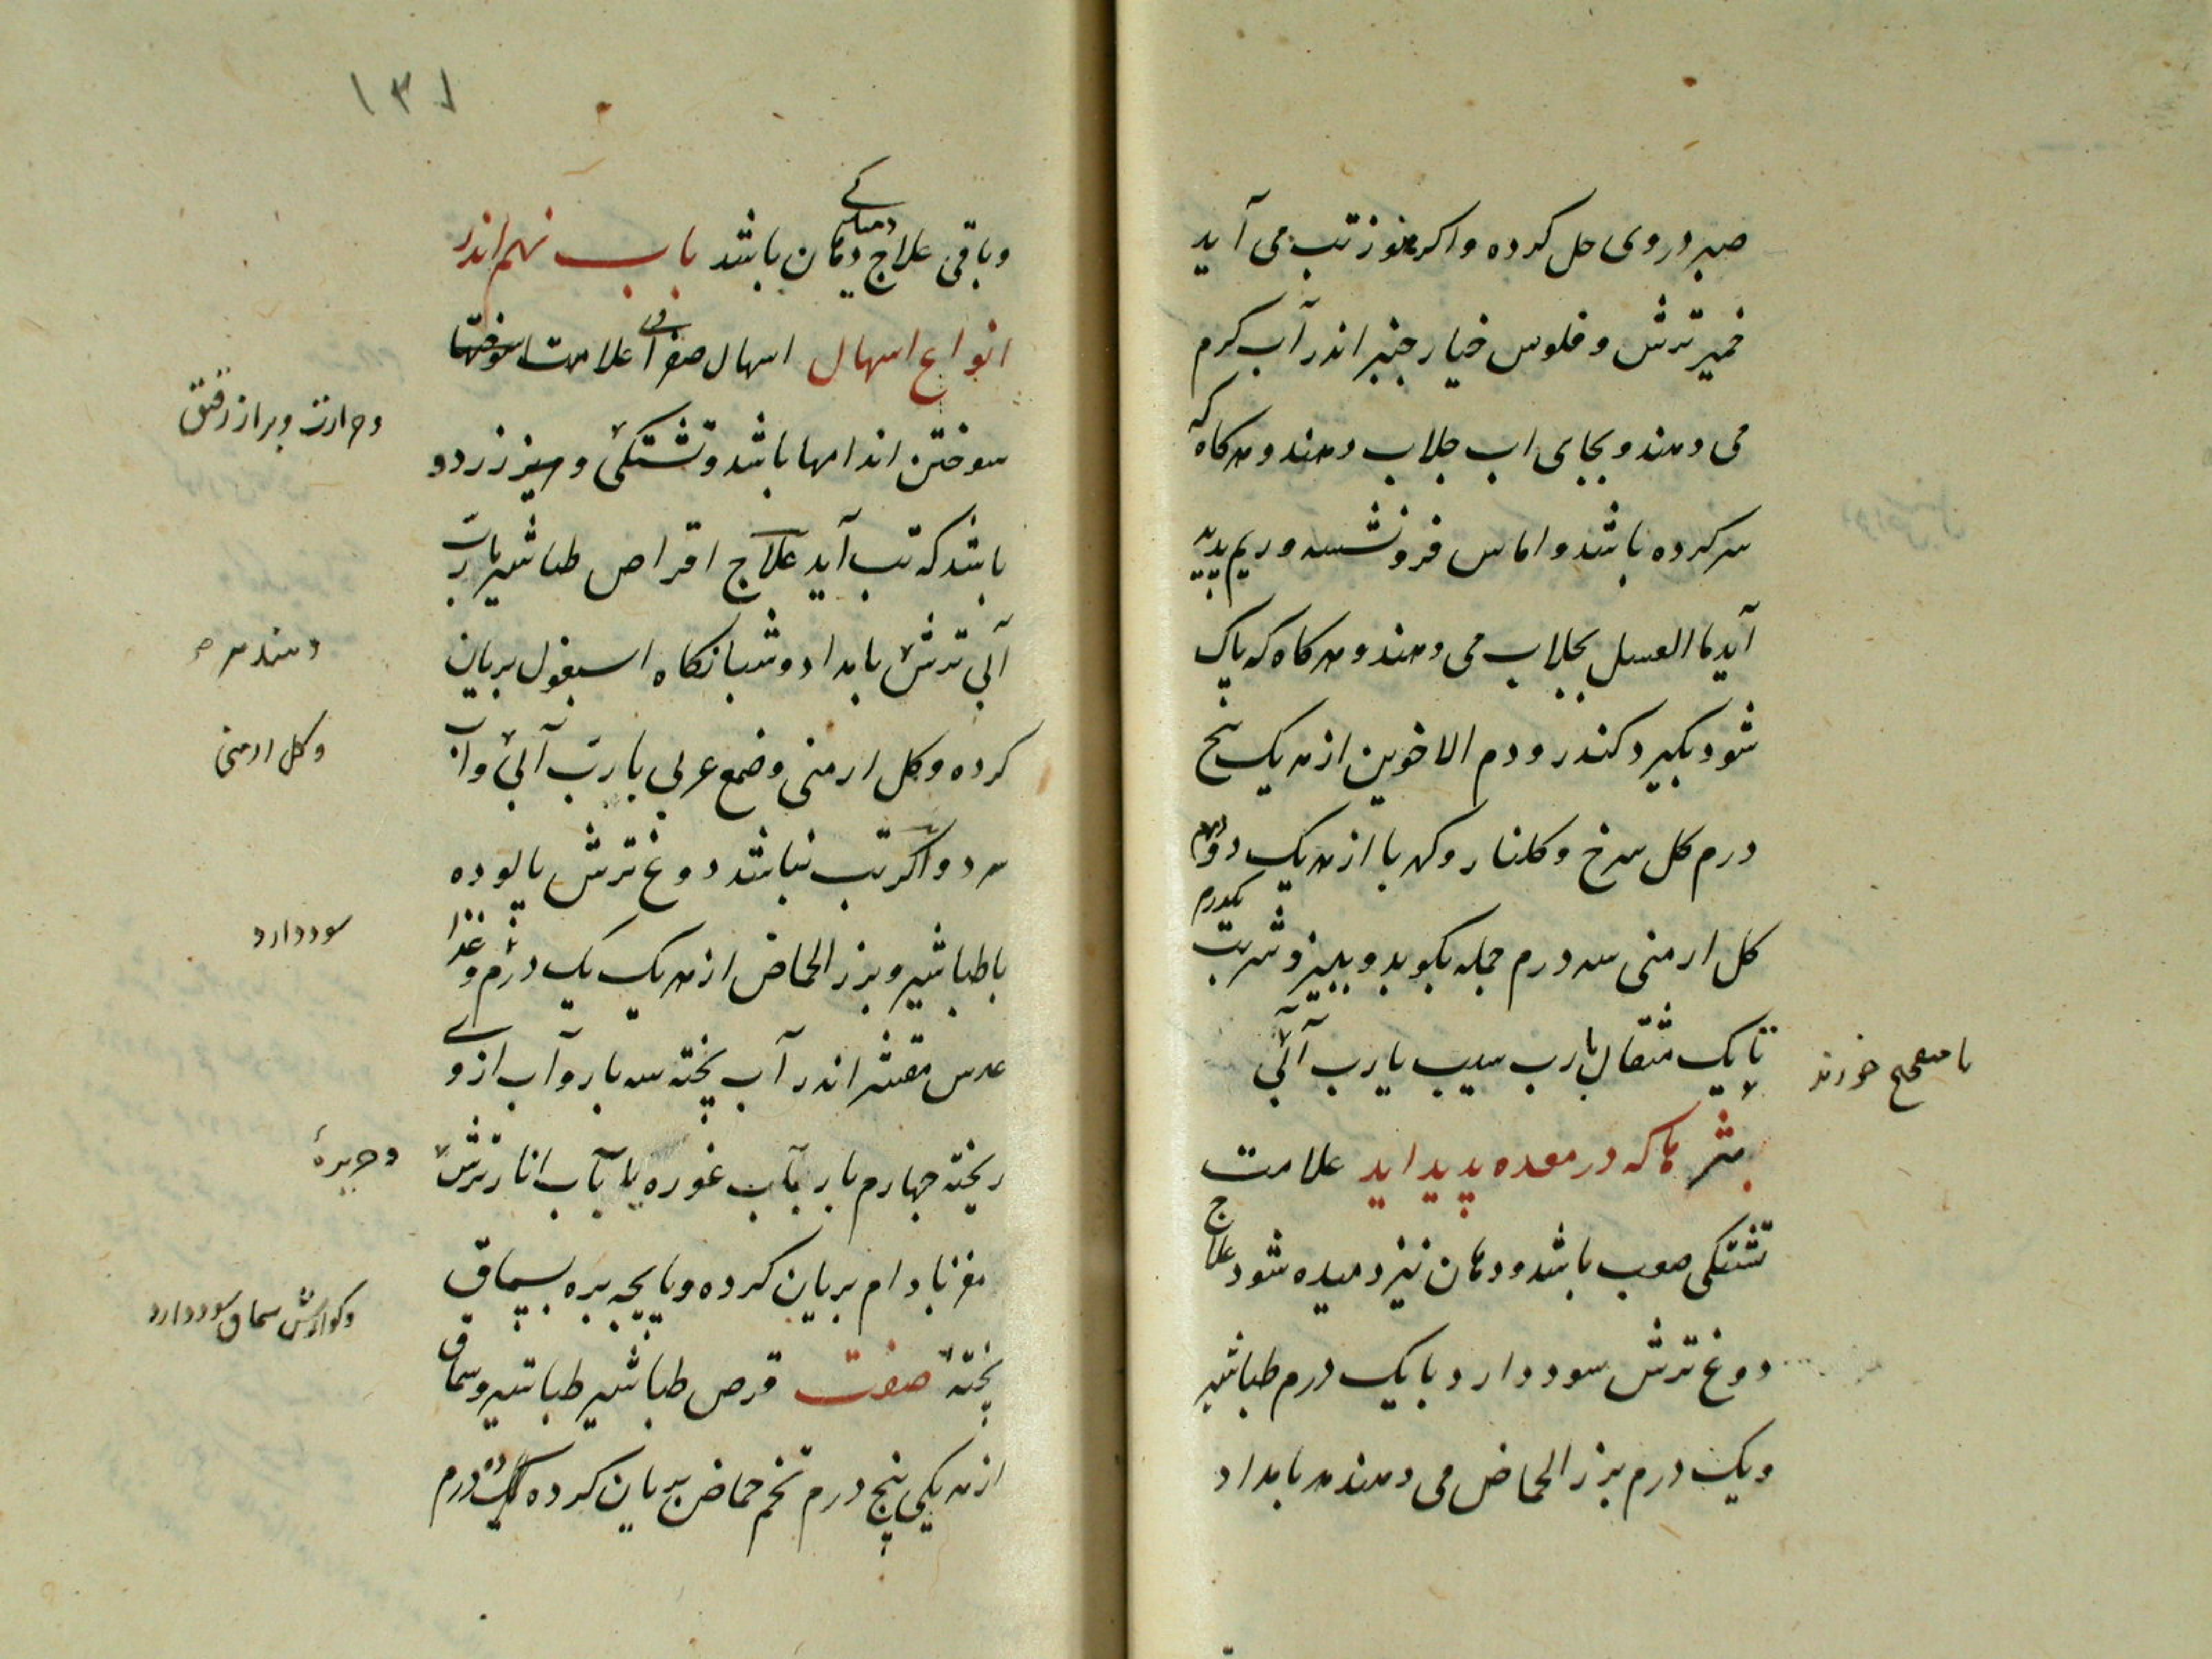 صبر دروی حل کرده واکر هنوز تب می آید
خمیر ترش و فلوس خیار چنبر اندر آب کرم
می دهند و بجای اب جلاب دهند و هرکاه که
سر کرده باشد و اماس فرو نشسته و ریم پدید
آید ما العسل بجلاب می دهند و هرکاه که پاک
شود بکیرد کندر و دم الاخوین از هر یک پنج
درم کل سرخ و کلنار و کهربا از هر یک دو درم
کل ارمنی سه درم جمله بکوبد و ببیزد و شربت یکدرم
تا یک مثقال با رب سیب یا رب آبی
بثرها که در معده پدید اید علامت
تشنکی صعب باشد و دهان نیز دمیده شود علاج
دوغ ترش سود دارد با یک درم طباشیر
ویک درم بزر الحماض می دهند هر بامداد
۱۳۱
وباقی علاج دمیدکی دهان باشد باب نهم اندر
انواع اسهال اسهال صفرائی علامت
سوختن اندامها باشد و تشنکی و زرد و
باشد که تب آید علاج اقراص طباشیر با رب
آبی ترش بامداد و شبانکاه اسبغول بریان
کرده و کل ارمنی و صمغ عربی با رب آبی و اب
سرد واکر تب نباشد دوغ ترش پالوده
با طباشیر و بزر الحماض از هر یک یک درم و غذا
عدس مقشر اندر آب پخته سه بار و آب از وی
ریخته چهارم بار بآب غوره یا بآب انار ترش
مغز بادام بریان کرده و پایچه بره بسماق
پخته صفت قرص طباشیر طباشیر وسماق
از هر یکی پنج درم تخم حماض بریان کرده ده درم
با مصحح خورند
وحرارت وبراز رقیق
دهند
وکل ارمنی
سود دارد
و حریره
و کوارش سماق سود دارد